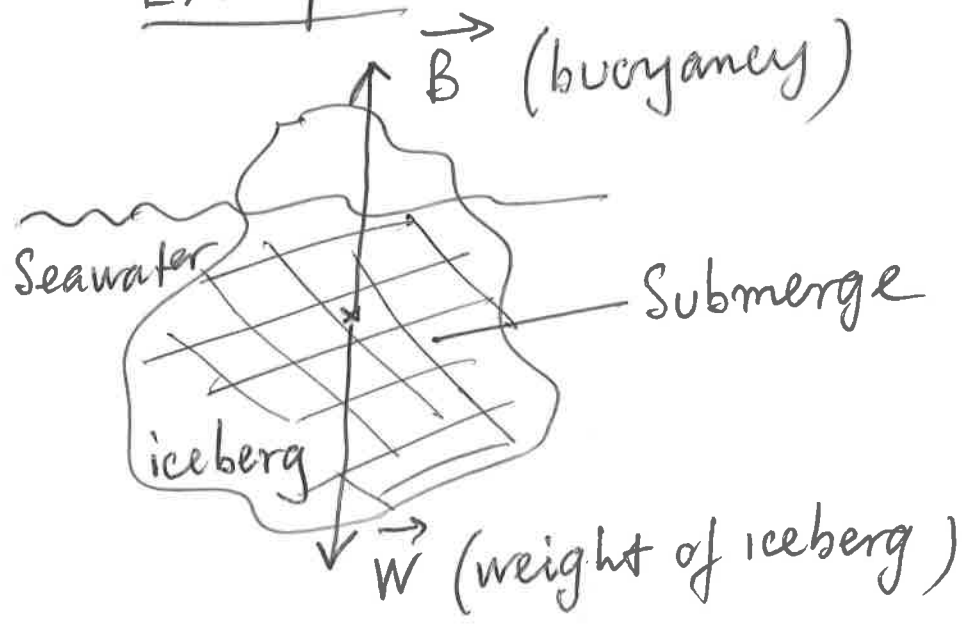 B (buoyancy)
Seawater
Submerge
iceberg
W (weight of iceberg)